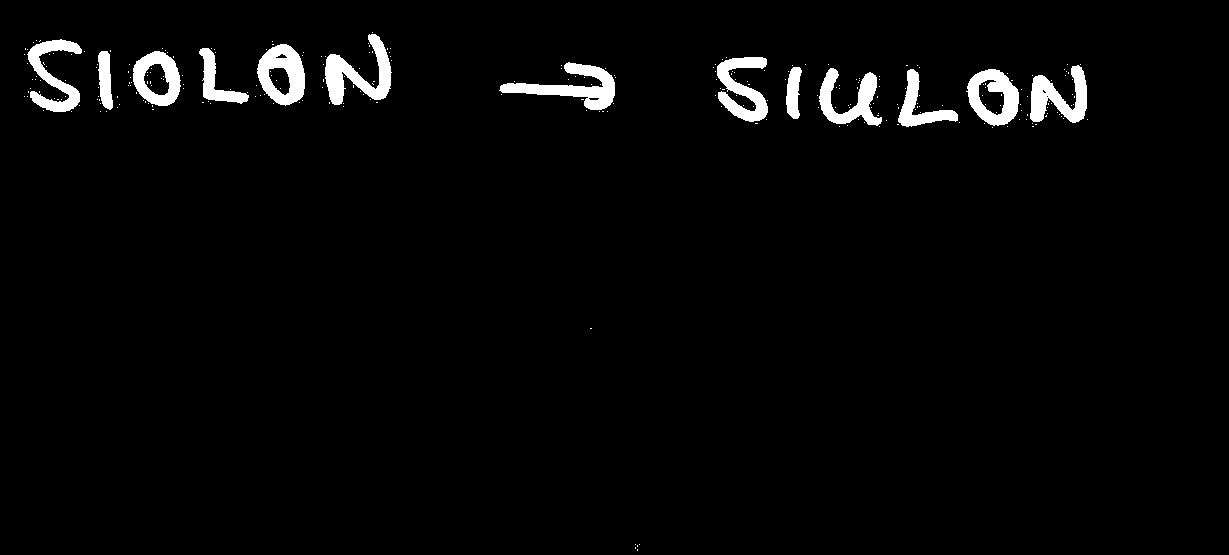 SIOLON → SIULON